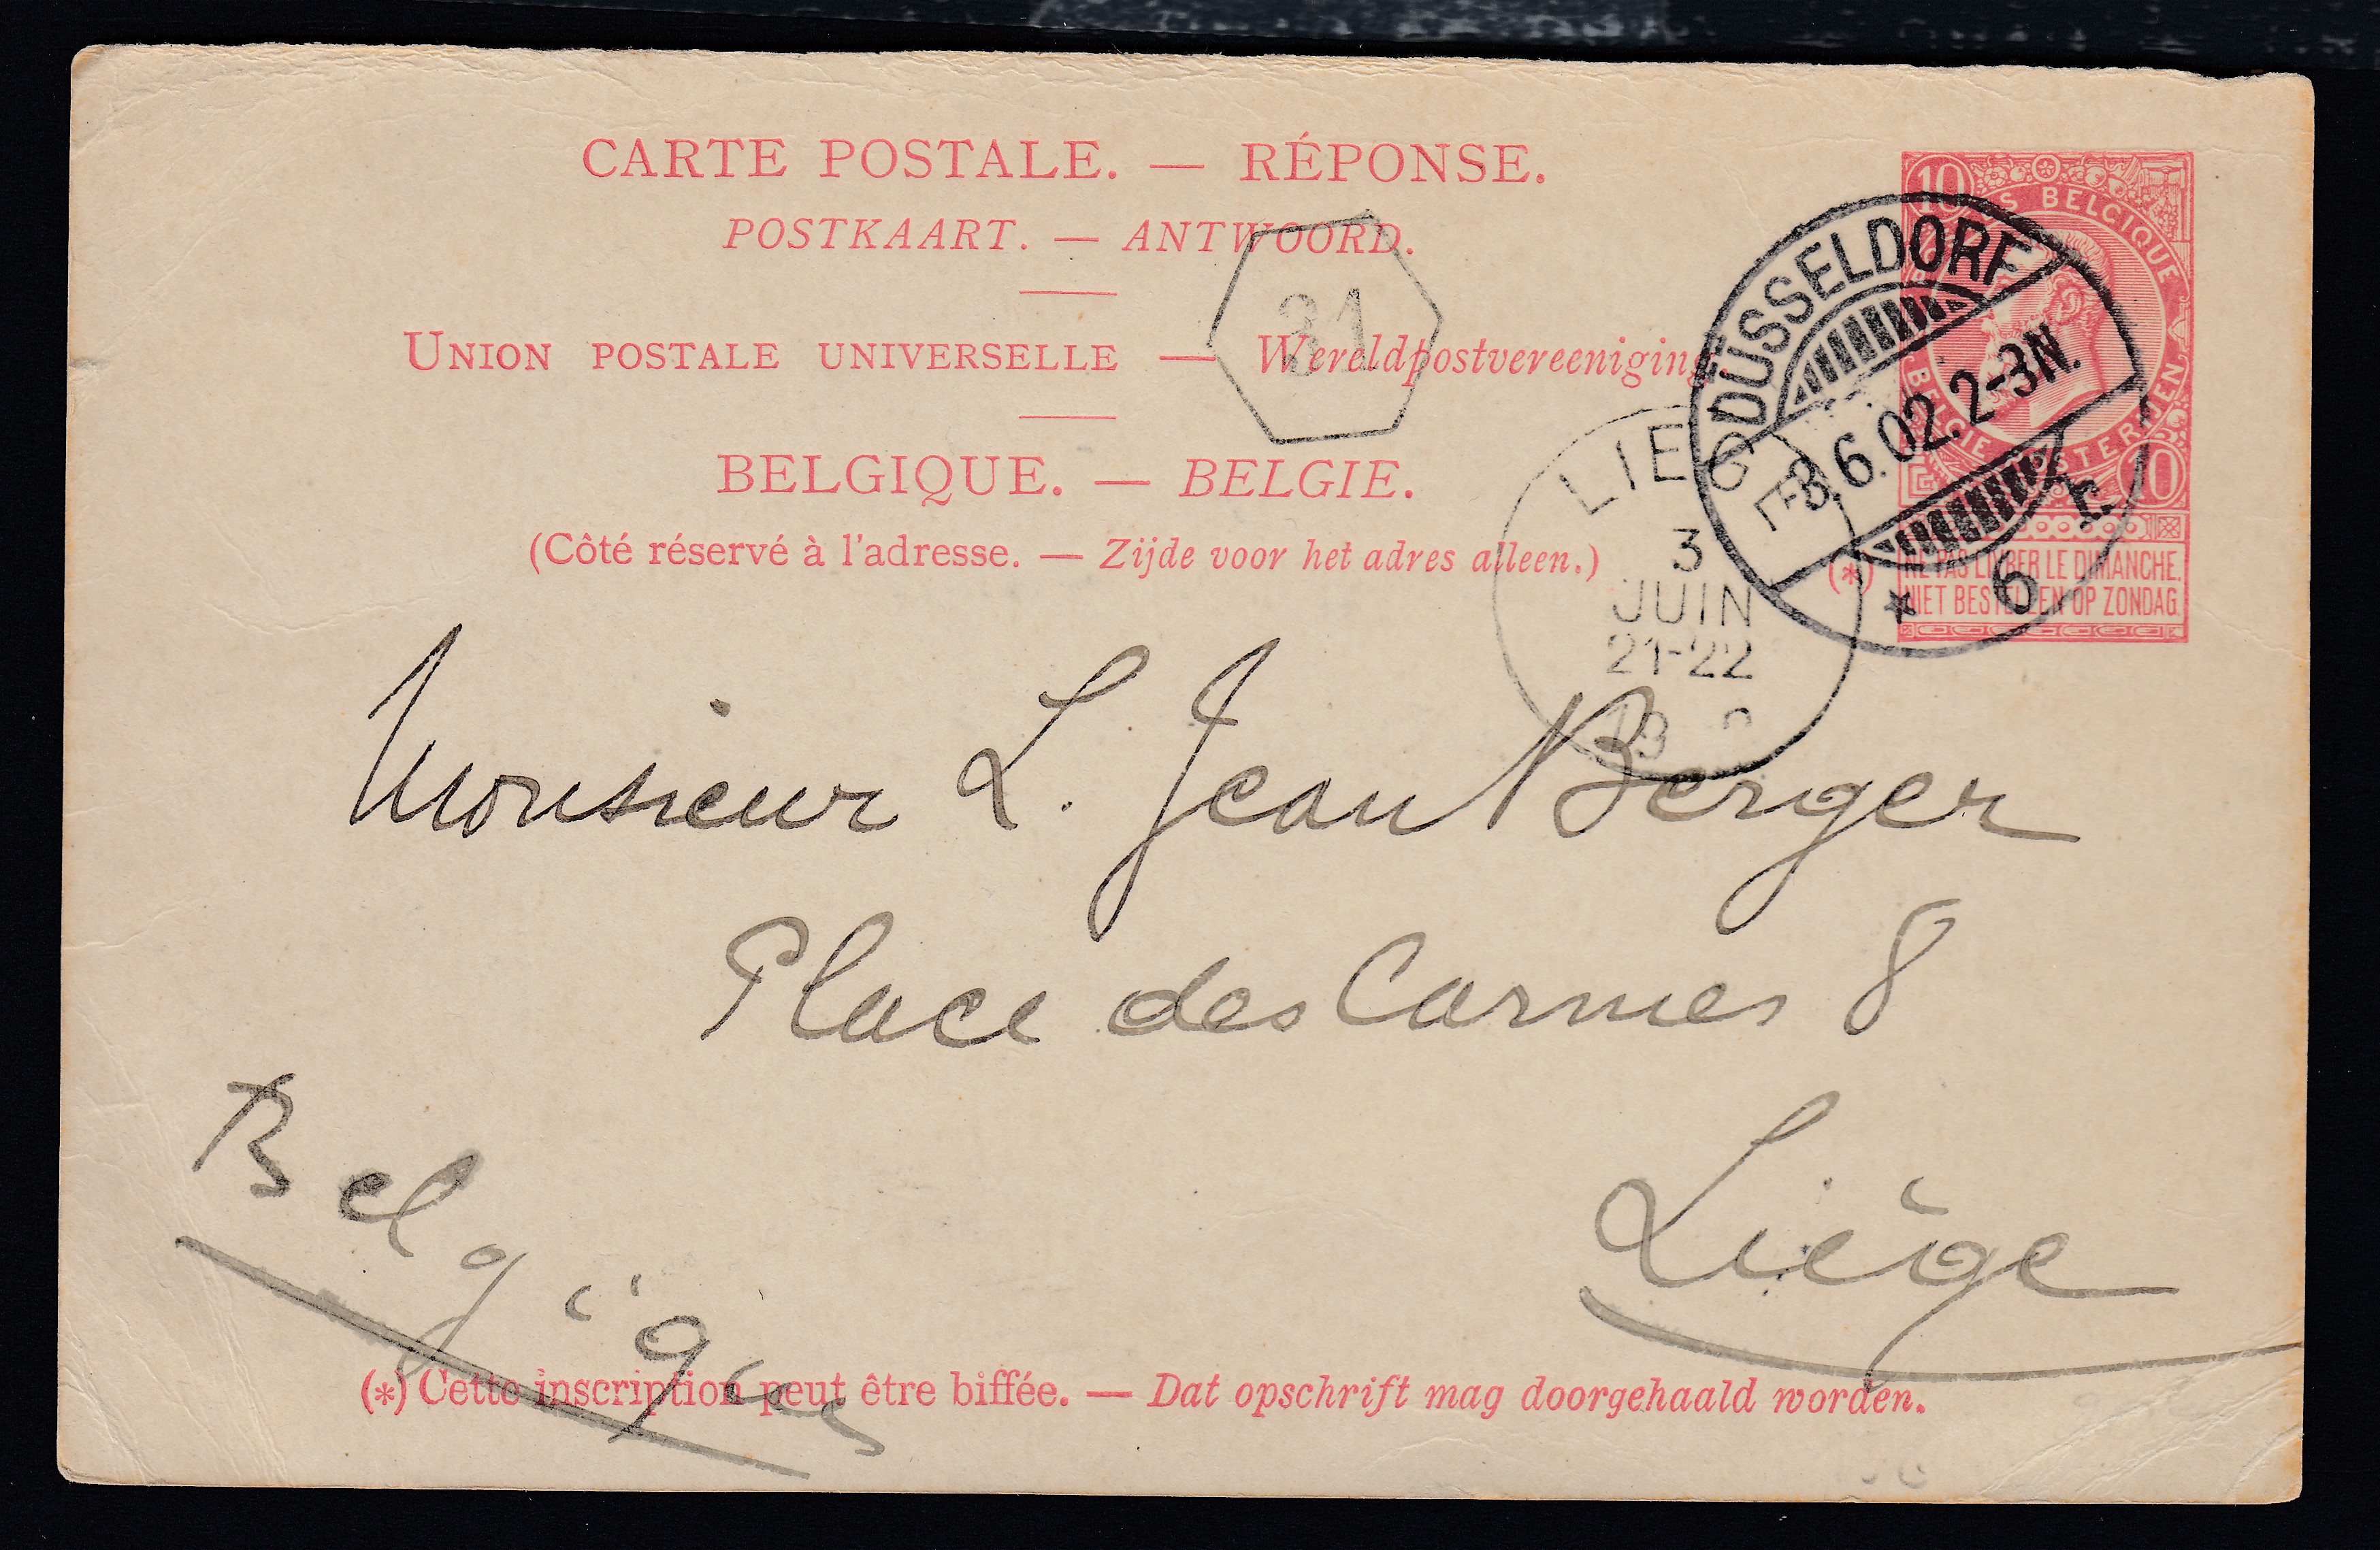 CARTE POSTALE. — RÉPONSE.
POSTKAART. — ANTWOORD.
UNION POSTALE UNIVERSELLE — Wereldpostvereeniging
BELGIQUE. — BELGIE.
(Côté réservé à l'adresse. — Zijde voor het adres alleen.)
31
10
BELGIQUE
BELGIE
10
(*) NE PAS LIVRER LE DIMANCHE.
NIET BESTELLEN OP ZONDAG.
DÜSSELDORF
3.6.02.2-3N.
* 6 r
LIEGE
3
JUIN
21-22
Monsieur L. Jean Berger
Place des Carmes 8
Liège
Belgique
(*) Cette inscription peut être biffée. — Dat opschrift mag doorgehaald worden.